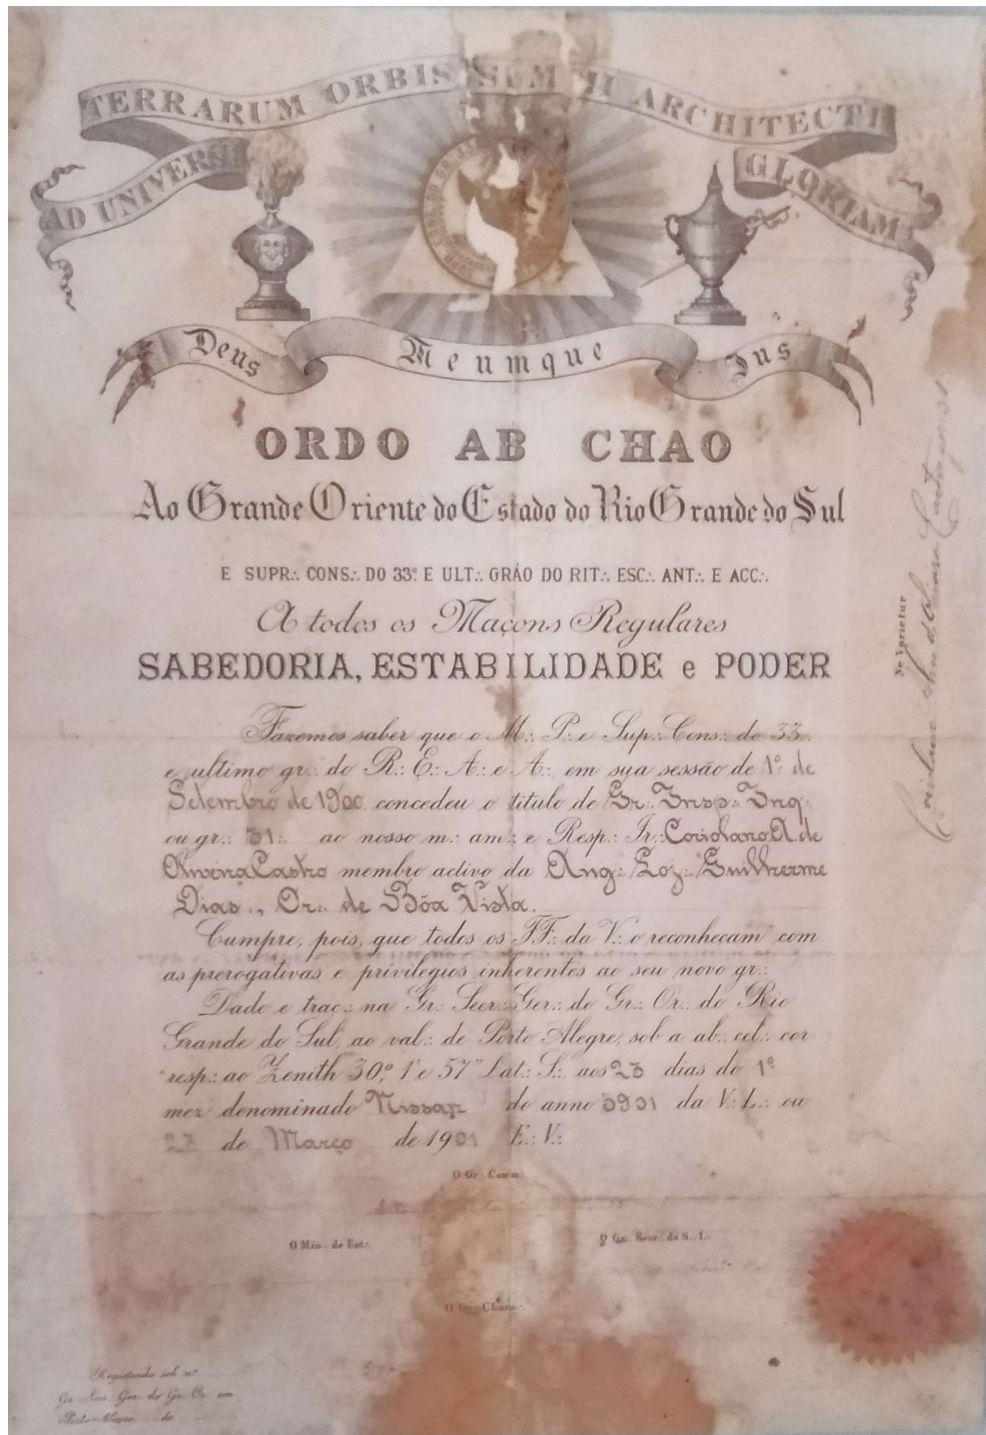 AD UNIVERSI TERRARUM ORBIS SUM I ARCHITECTI GLORIAM
Deus Meumque Jus
ORDO AB CHAO
Ao Grande Oriente do Estado do Rio Grande do Sul
E SUPR∴ CONS∴ DO 33º E ULT∴ GRÁO DO RIT∴ ESC∴ ANT∴ E ACC∴
A todos os Maçons Regulares
SABEDORIA, ESTABILIDADE e PODER
Fazemos saber que o M∴ P∴ e Sup∴ Cons∴ do 33∴
e ultimo gr∴ do R∴ E∴ A∴ e A∴, em sua sessão de 1º de
Setembro de 1900 concedeu o titulo de Gr∴ Insp∴ Inq∴
ou gr∴ 31∴ ao nosso m∴ am∴ e Resp∴ Ir∴ Coriolano A de
Oliveira Castro membro activo da Aug∴ Loj∴ Guilherme
Dias∴, Or∴ de Bôa Vista.
Cumpre, pois, que todos os FF∴ da V∴ o reconheçam com
as prerogativas e privilegios inherentes ao seu novo gr∴
Dado e traç∴ na Gr∴ Secr∴ Ger∴ do Gr∴ Or∴ do Rio
Grande do Sul, ao val∴ de Porto Alegre, sob a ab∴ cel∴ cor
resp∴ ao Zenith 30º, 1' e 57" Lat∴ S∴, aos 23 dias do 1º
mez denominado Nissan do anno 5901 da V∴ L∴ ou
23 de Março de 1901 E∴ V∴
O Gr∴ Comm∴
O Min∴ de Est∴
O Gr∴ Secr∴ do S∴ I∴
O Gr∴ Chanc∴
Registrado sob nº
Gr∴ Secr∴ Ger∴ do Gr∴ Or∴ em
Porto Alegre de
Ne Varietur